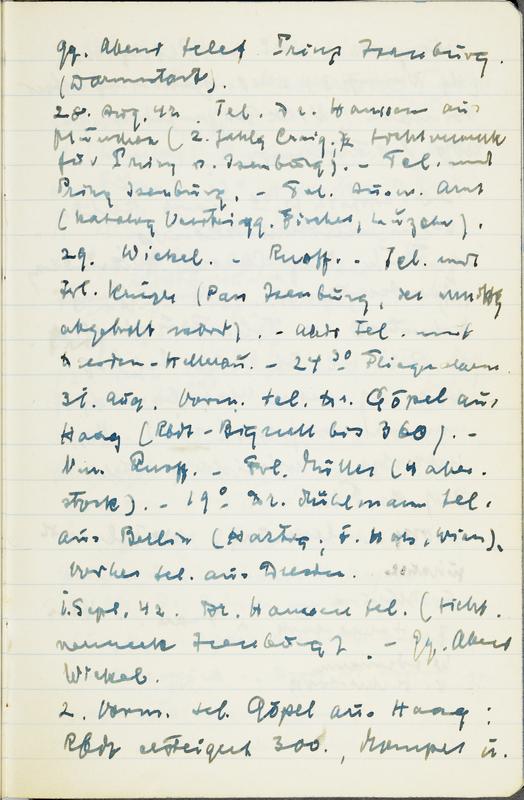 gg. Abend telef Prinz Isenburg.
(Darmstadt).
28. Aug. 42. Tel. Dr. Hanssen aus
München (2. Craig, Sichtvermerk
für Prinz v. Isenburg). - Tel. mit
Prinz Isenburg. - Tel. Ausw. Amt
(Katalog Fischer, Luzern).
29. Wickel. - Ruoff. - Tel. mit
Frl. Krüger (Pass Isenburg, der
abgeholt wird). - Abds Tel. mit
Dresden-Hellerau. - 24 30 Fliegeralarm.
31. Aug. Vorm. tel. Dr. Göpel aus
Haag (Rbdt - bis 360). -
Nm. Ruoff. - Frl. Müller (Haber-
stock). - 19 0 Dr. Mühlmann tel.
aus Berlin (Hartig, F. Hals, Wien),
Vorher tel. aus Dresden.
1. Sept. 42. Dr. Hanssen tel. (Sicht-
vermerk Isenburg). - Gg. Abend
Wickel.
2. Vorm. tel. Göpel aus Haag:
Rbdt ersteigert 300., Momper u.